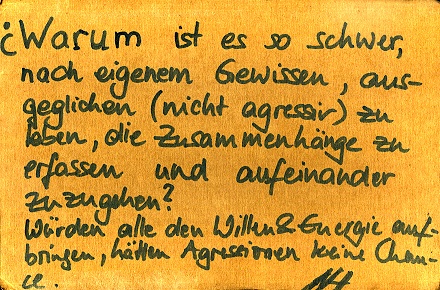 ¿Warum ist es so schwer,
nach eigenem Gewissen, aus-
geglichen (nicht agressiv) zu
leben, die Zusammenhänge zu
erfassen und aufeinander
zuzugehen?
Würden alle den Willen & Energie auf-
bringen, hätten Agressionen keine Chan-
ce.